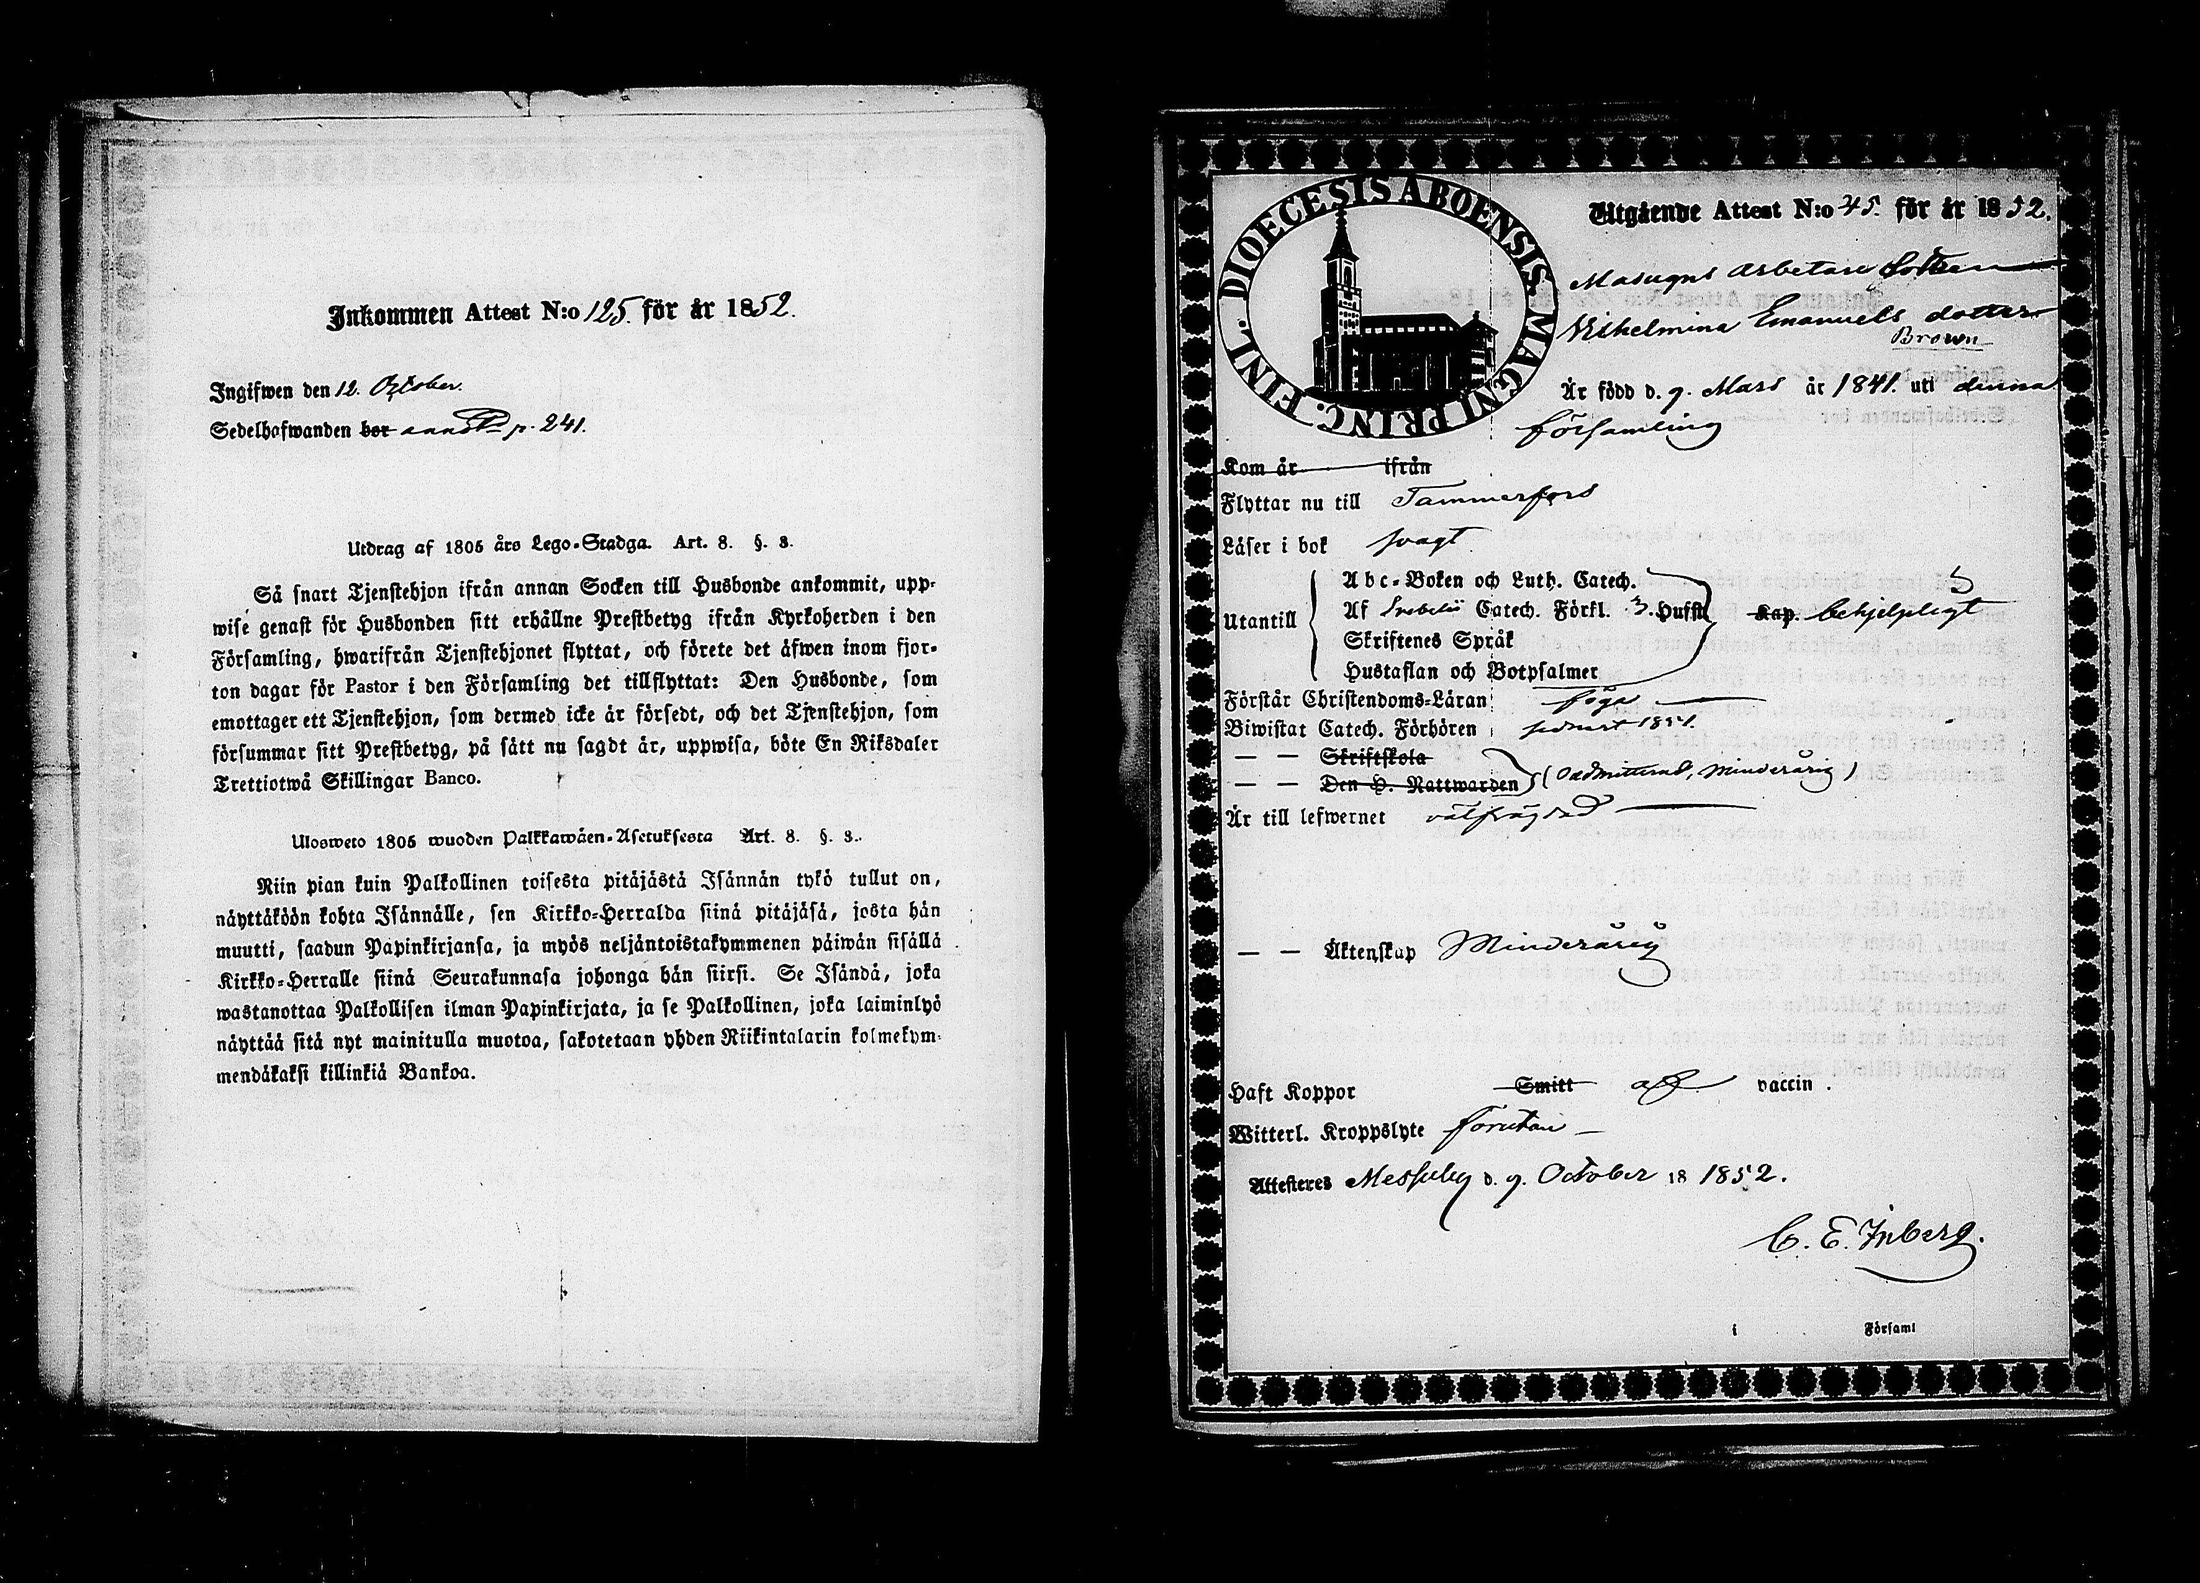 Inkommen Attest N:o 125. för år 1852.
Ingifwen den 12. October.
Sedelhafwanden bor annot. p. 241.
Utdrag af 1805 års Lego-Stadga. Art. 8. §. 3.
Så snart Tjenstehjon ifrån annan Socken till Husbonde ankommit, upp-
wise genast för Husbonden sitt erhållne Prestbetyg ifrån Kyrkoherden i den
Församling, hwarifrån Tjenstehjonet flyttat, och förete det äfwen inom fjor-
ton dagar för Pastor i den Församling det tillflyttat: Den Husbonde, som
emottager ett Tjenstehjon, som dermed icke är försedt, och det Tjenstehjon, som
försummar sitt Prestbetyg, på sätt nu sagdt är, uppwisa, böte En Riksdaler
Trettiotwå Skillingar Banco.
Ulosweto 1805 wuoden Palkkawäen-Asetuksesta Art. 8. §. 3.
Niin pian kuin Palkollinen toisesta pitäjästä Isännän tykö tullut on,
näyttäköön kohta Isännälle, sen Kirkko-Herralda siinä pitäjäsä, josta hän
muutti, saadun Papinkirjansa, ja myös neljäntoistakymmenen päiwän sisällä
Kirkko-Herralle siinä Seurakunnasa johonga hän siirsi. Se Isändä, joka
wastanottaa Palkollisen ilman Papinkirjata, ja se Palkollinen, joka laiminlyö
näyttää sitä nyt mainitulla muotoa, sakotetaan yhden Riikintalarin kolmekym-
mendäkaksi killinkiä Bankoa.
DIOECESIS ABOENSIS. MAGNI PRINC. FINL.
Utgående Attest N:o 45. för år 1852.
Masugns Arbetare dottren
Vilhelmina Emanuels dotter
Brown
Är född d. 9. Mars år 1841. uti denna
församling
Kom år ifrån
Flyttar nu till Tammerfors
Läser i bok svagt
Utantill
Abc-Boken och Luth. Catech.
Af Svebelii Catech. Förkl. 3. Hufst
Skriftenes Språk
Hustaflan och Botpsalmer
Kap. behjelpligt
Förstår Christendoms-Läran föga
Biwistat Catech. Förhören sednast 1851.
— — Skriftskola
— — Den H. Nattwarden (Oadmitterad, minderårig)
Är till lefwernet välfrägdad
— — Äktenskap Minderårig
Haft Koppor Smitt af vaccin.
Witterl. Kroppslyte förutan
Attesteres Messuby d. 9. October 18 1852.
C. E. Inberg.
i Församl